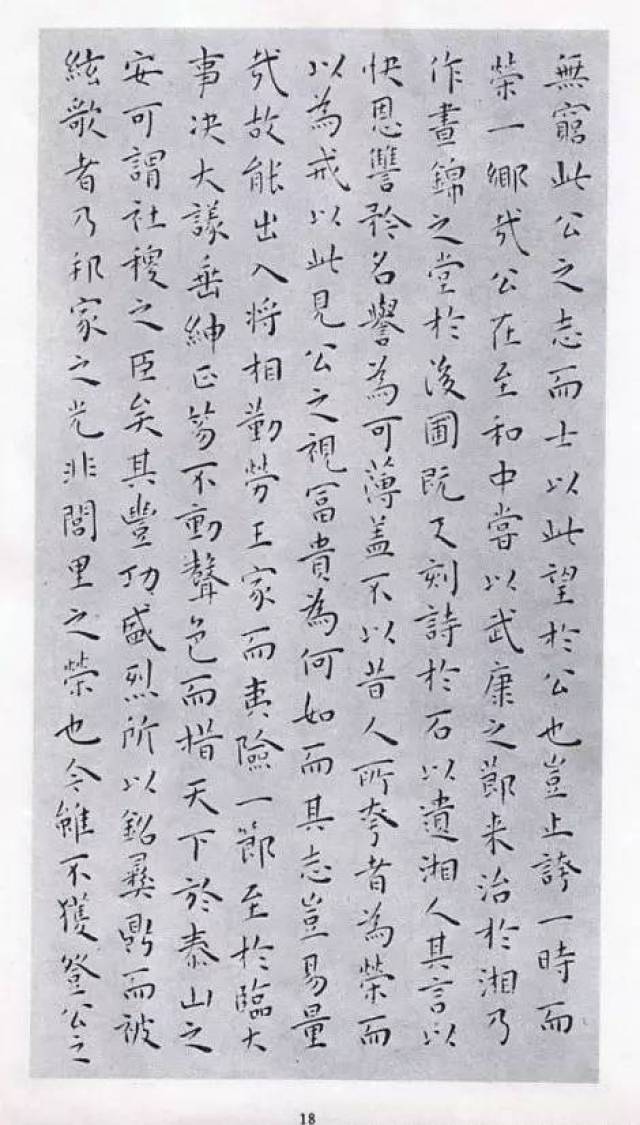 無窮此公之志而士以此望於公也豈止誇一時而
榮一鄉哉公在至和中嘗以武康之節来治於湘乃
作晝錦之堂於後圃既又刻詩於石以遺湘人其言以
快恩讐矜名譽為可薄盖不以昔人所夸者為榮而
以為戒以此見公之視富貴為何如而其志豈易量
哉故能出入将相勤勞王家而夷險一節至於臨大
事决大議垂紳正笏不動聲色而措天下於泰山之
安可謂社稷之臣矣其豐功盛烈所以銘彝鼎而被
絃歌者乃邦家之光非閭里之榮也今雖不獲登公之
18